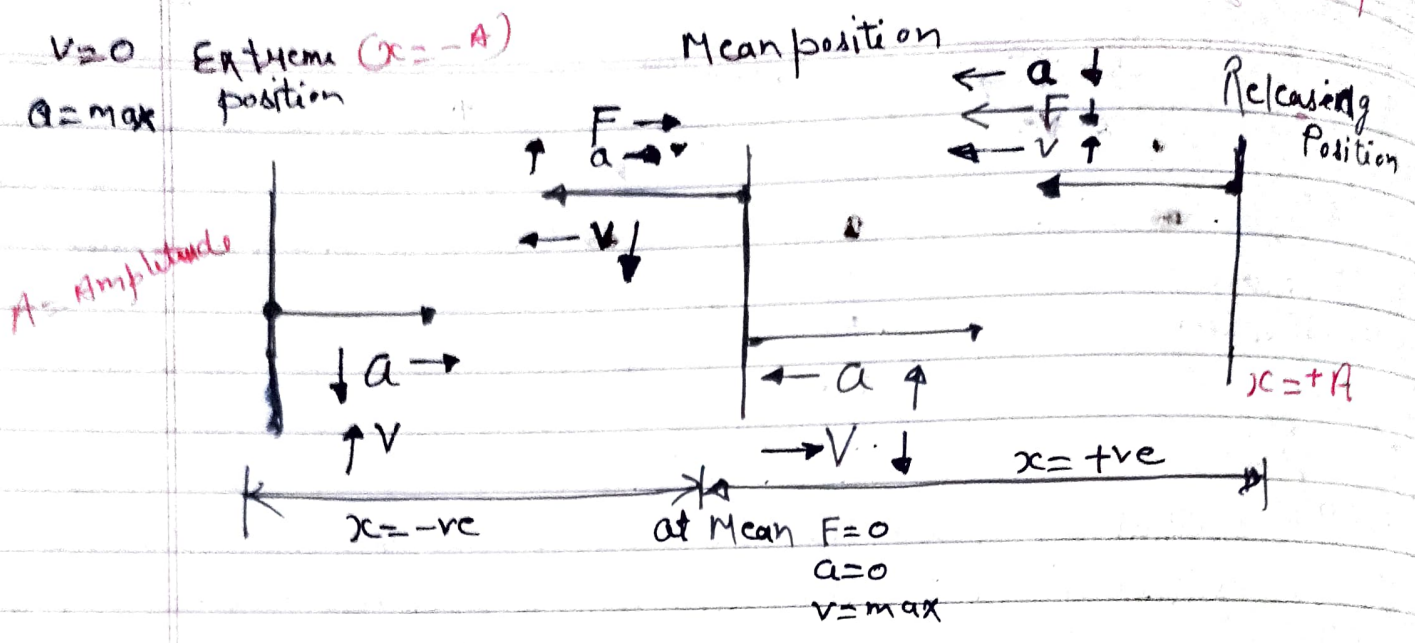 V=0
a=max
Extreme (x=-A)
position
Mean position
← a ↓
← F ↓
← v ↑
Releasing
Position
F →
↑ a →
← v ↓
A- Amplitude
↓ a →
↑ V
← a ↑
→ V ↓
x=+A
x=+ve
x=-ve
at Mean F=0
a=0
v=max